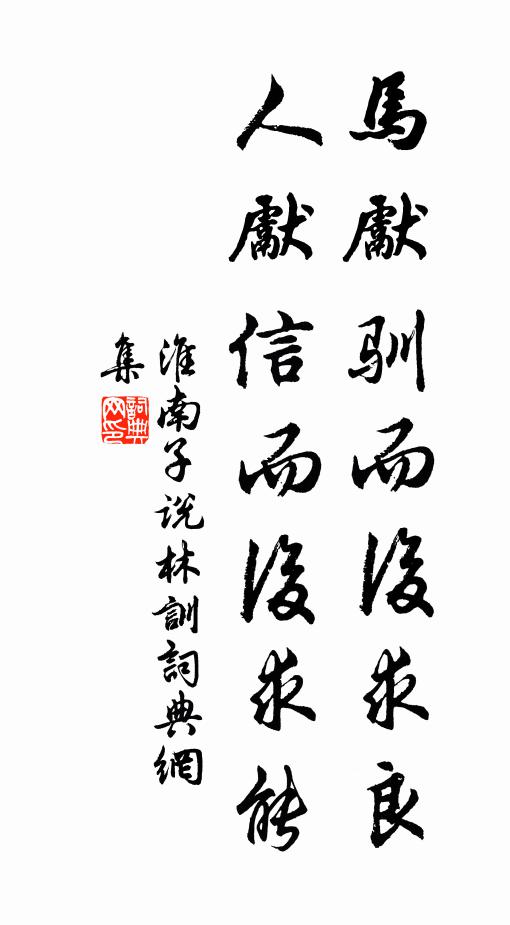 馬獻馴而後求良
人獻信而後求能
淮南子説林訓詞典網
集
詞典網印